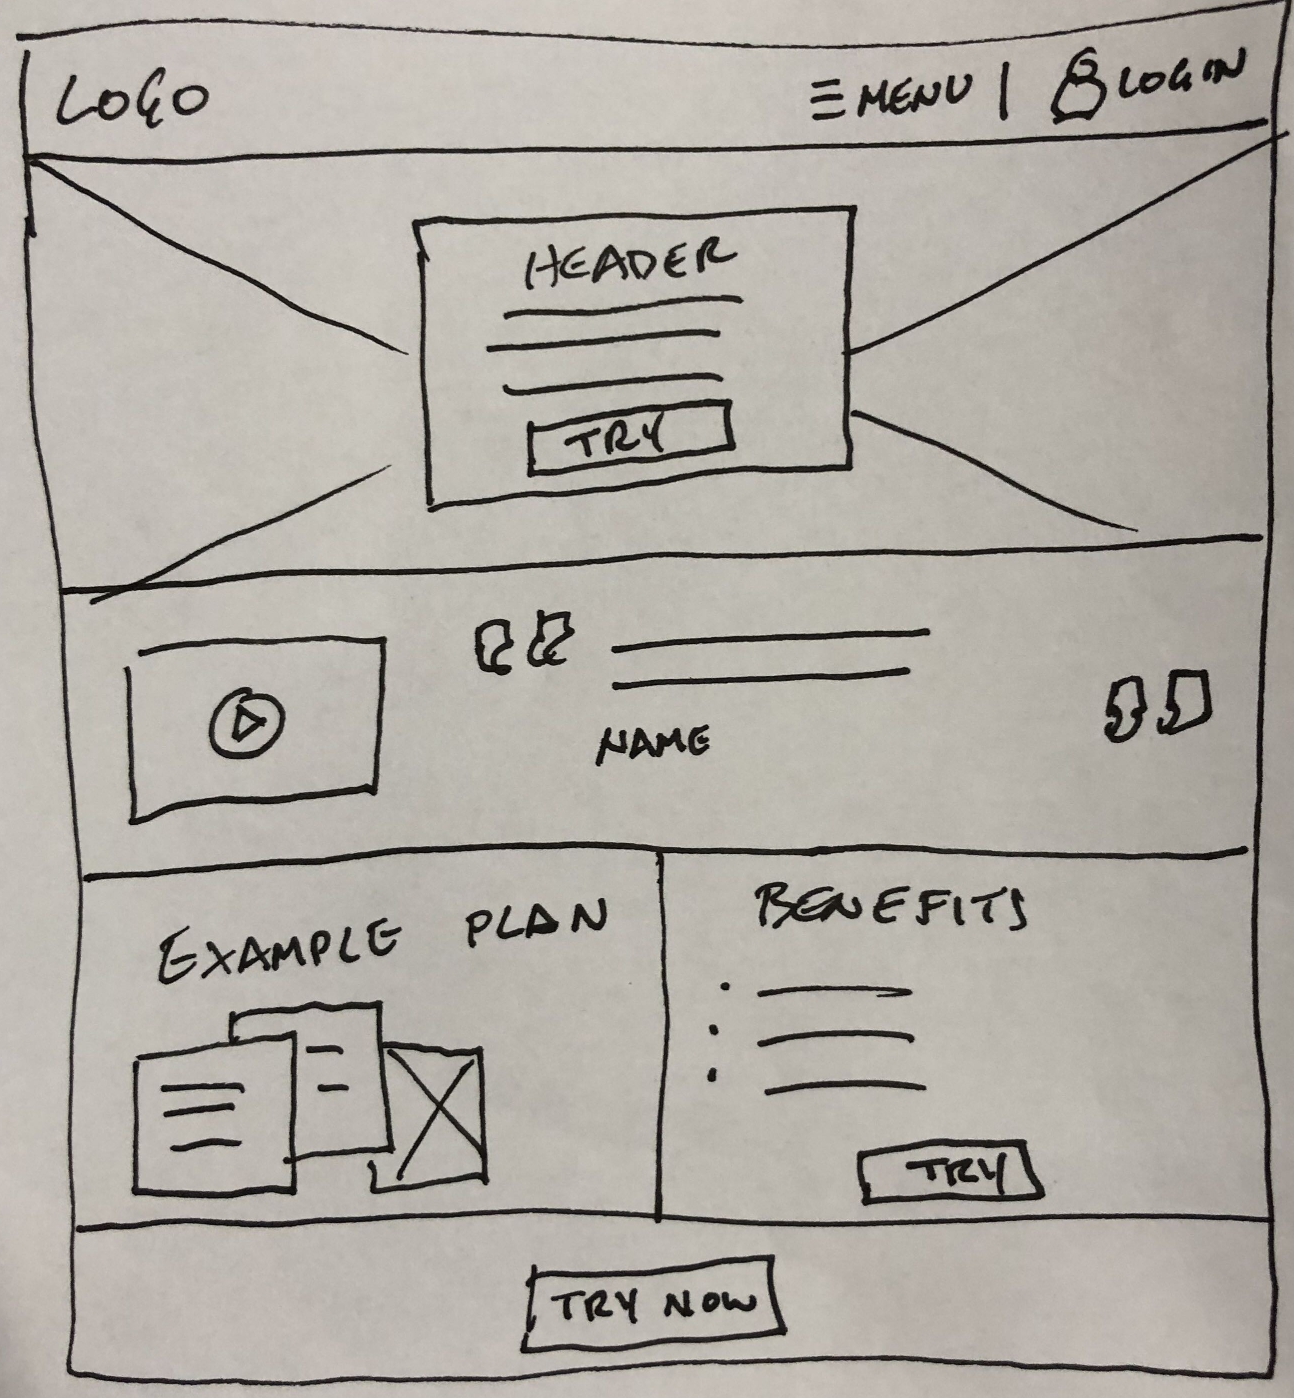 LOGO
MENU | LOGIN
HEADER
TRY
NAME
EXAMPLE PLAN
BENEFITS
TRY
TRY NOW